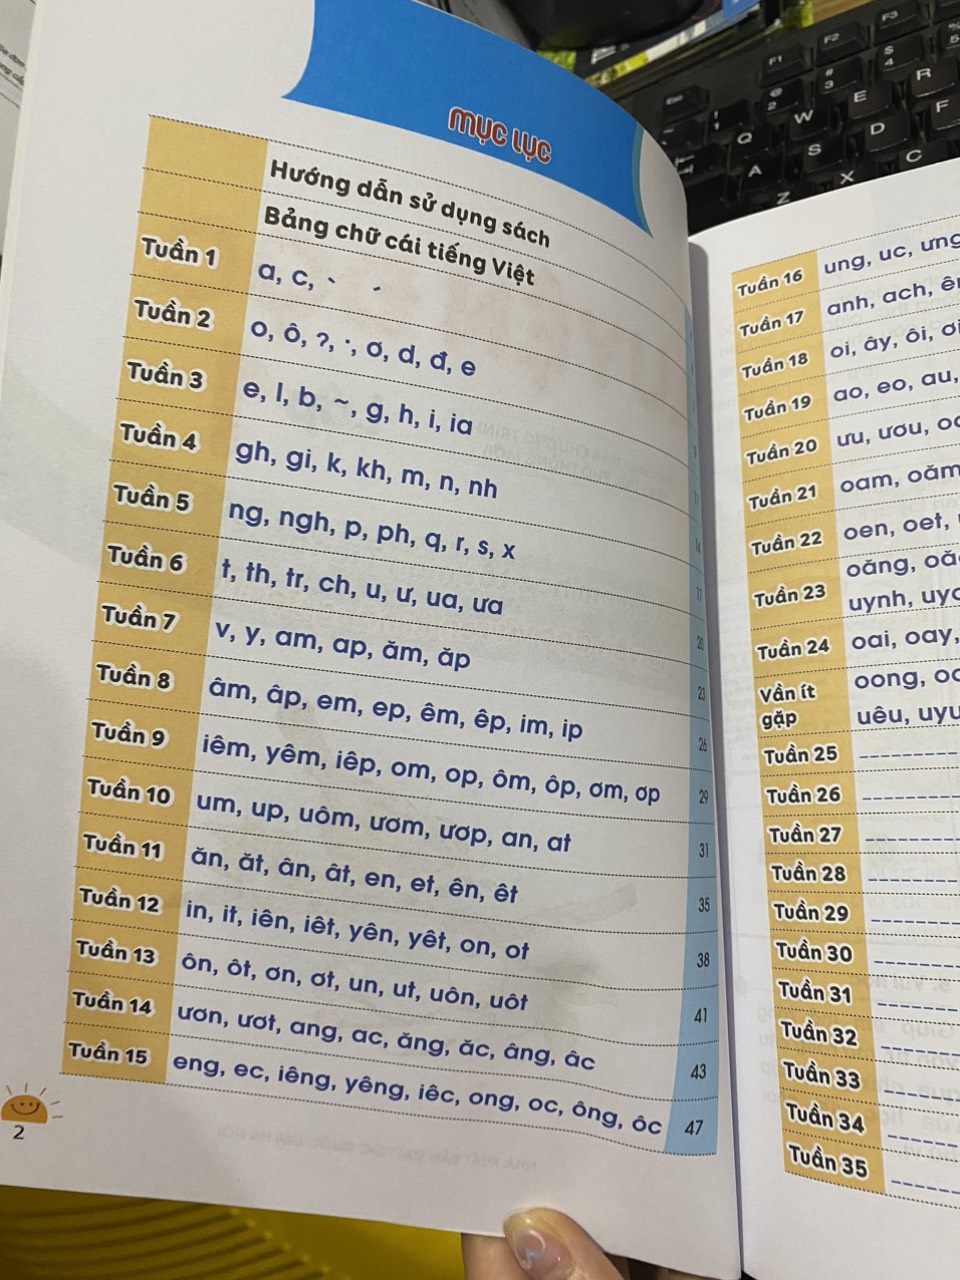 MỤC LỤC
Hướng dẫn sử dụng sách
Bảng chữ cái tiếng Việt
Tuần 1 a, c, ` ´
Tuần 2 o, ô, ?, ·, ơ, d, đ, e
Tuần 3 e, l, b, ~, g, h, i, ia
Tuần 4 gh, gi, k, kh, m, n, nh
Tuần 5 ng, ngh, p, ph, q, r, s, x
Tuần 6 t, th, tr, ch, u, ư, ua, ưa
Tuần 7 v, y, am, ap, ăm, ăp 20
Tuần 8 âm, âp, em, ep, êm, êp, im, ip 23
Tuần 9 iêm, yêm, iêp, om, op, ôm, ôp, ơm, ơp 29
Tuần 10 um, up, uôm, ươm, ươp, an, at 31
Tuần 11 ăn, ăt, ân, ât, en, et, ên, êt 35
Tuần 12 in, it, iên, iêt, yên, yêt, on, ot 38
Tuần 13 ôn, ôt, ơn, ơt, un, ut, uôn, uôt 41
Tuần 14 ươn, ươt, ang, ac, ăng, ăc, âng, âc 43
Tuần 15 eng, ec, iêng, yêng, iêc, ong, oc, ông, ôc 47
2
Tuần 16 ung, uc, ưng
Tuần 17 anh, ach,
Tuần 18 oi, ây, ôi,
Tuần 19 ao, eo, au,
Tuần 20 ưu, ươu,
Tuần 21 oam, oăm
Tuần 22 oen, oet,
Tuần 23 oăng,
uynh,
Tuần 24 oai, oay,
Vần ít gặp oong,
uêu, uyu
Tuần 25
Tuần 26
Tuần 27
Tuần 28
Tuần 29
Tuần 30
Tuần 31
Tuần 32
Tuần 33
Tuần 34
Tuần 35